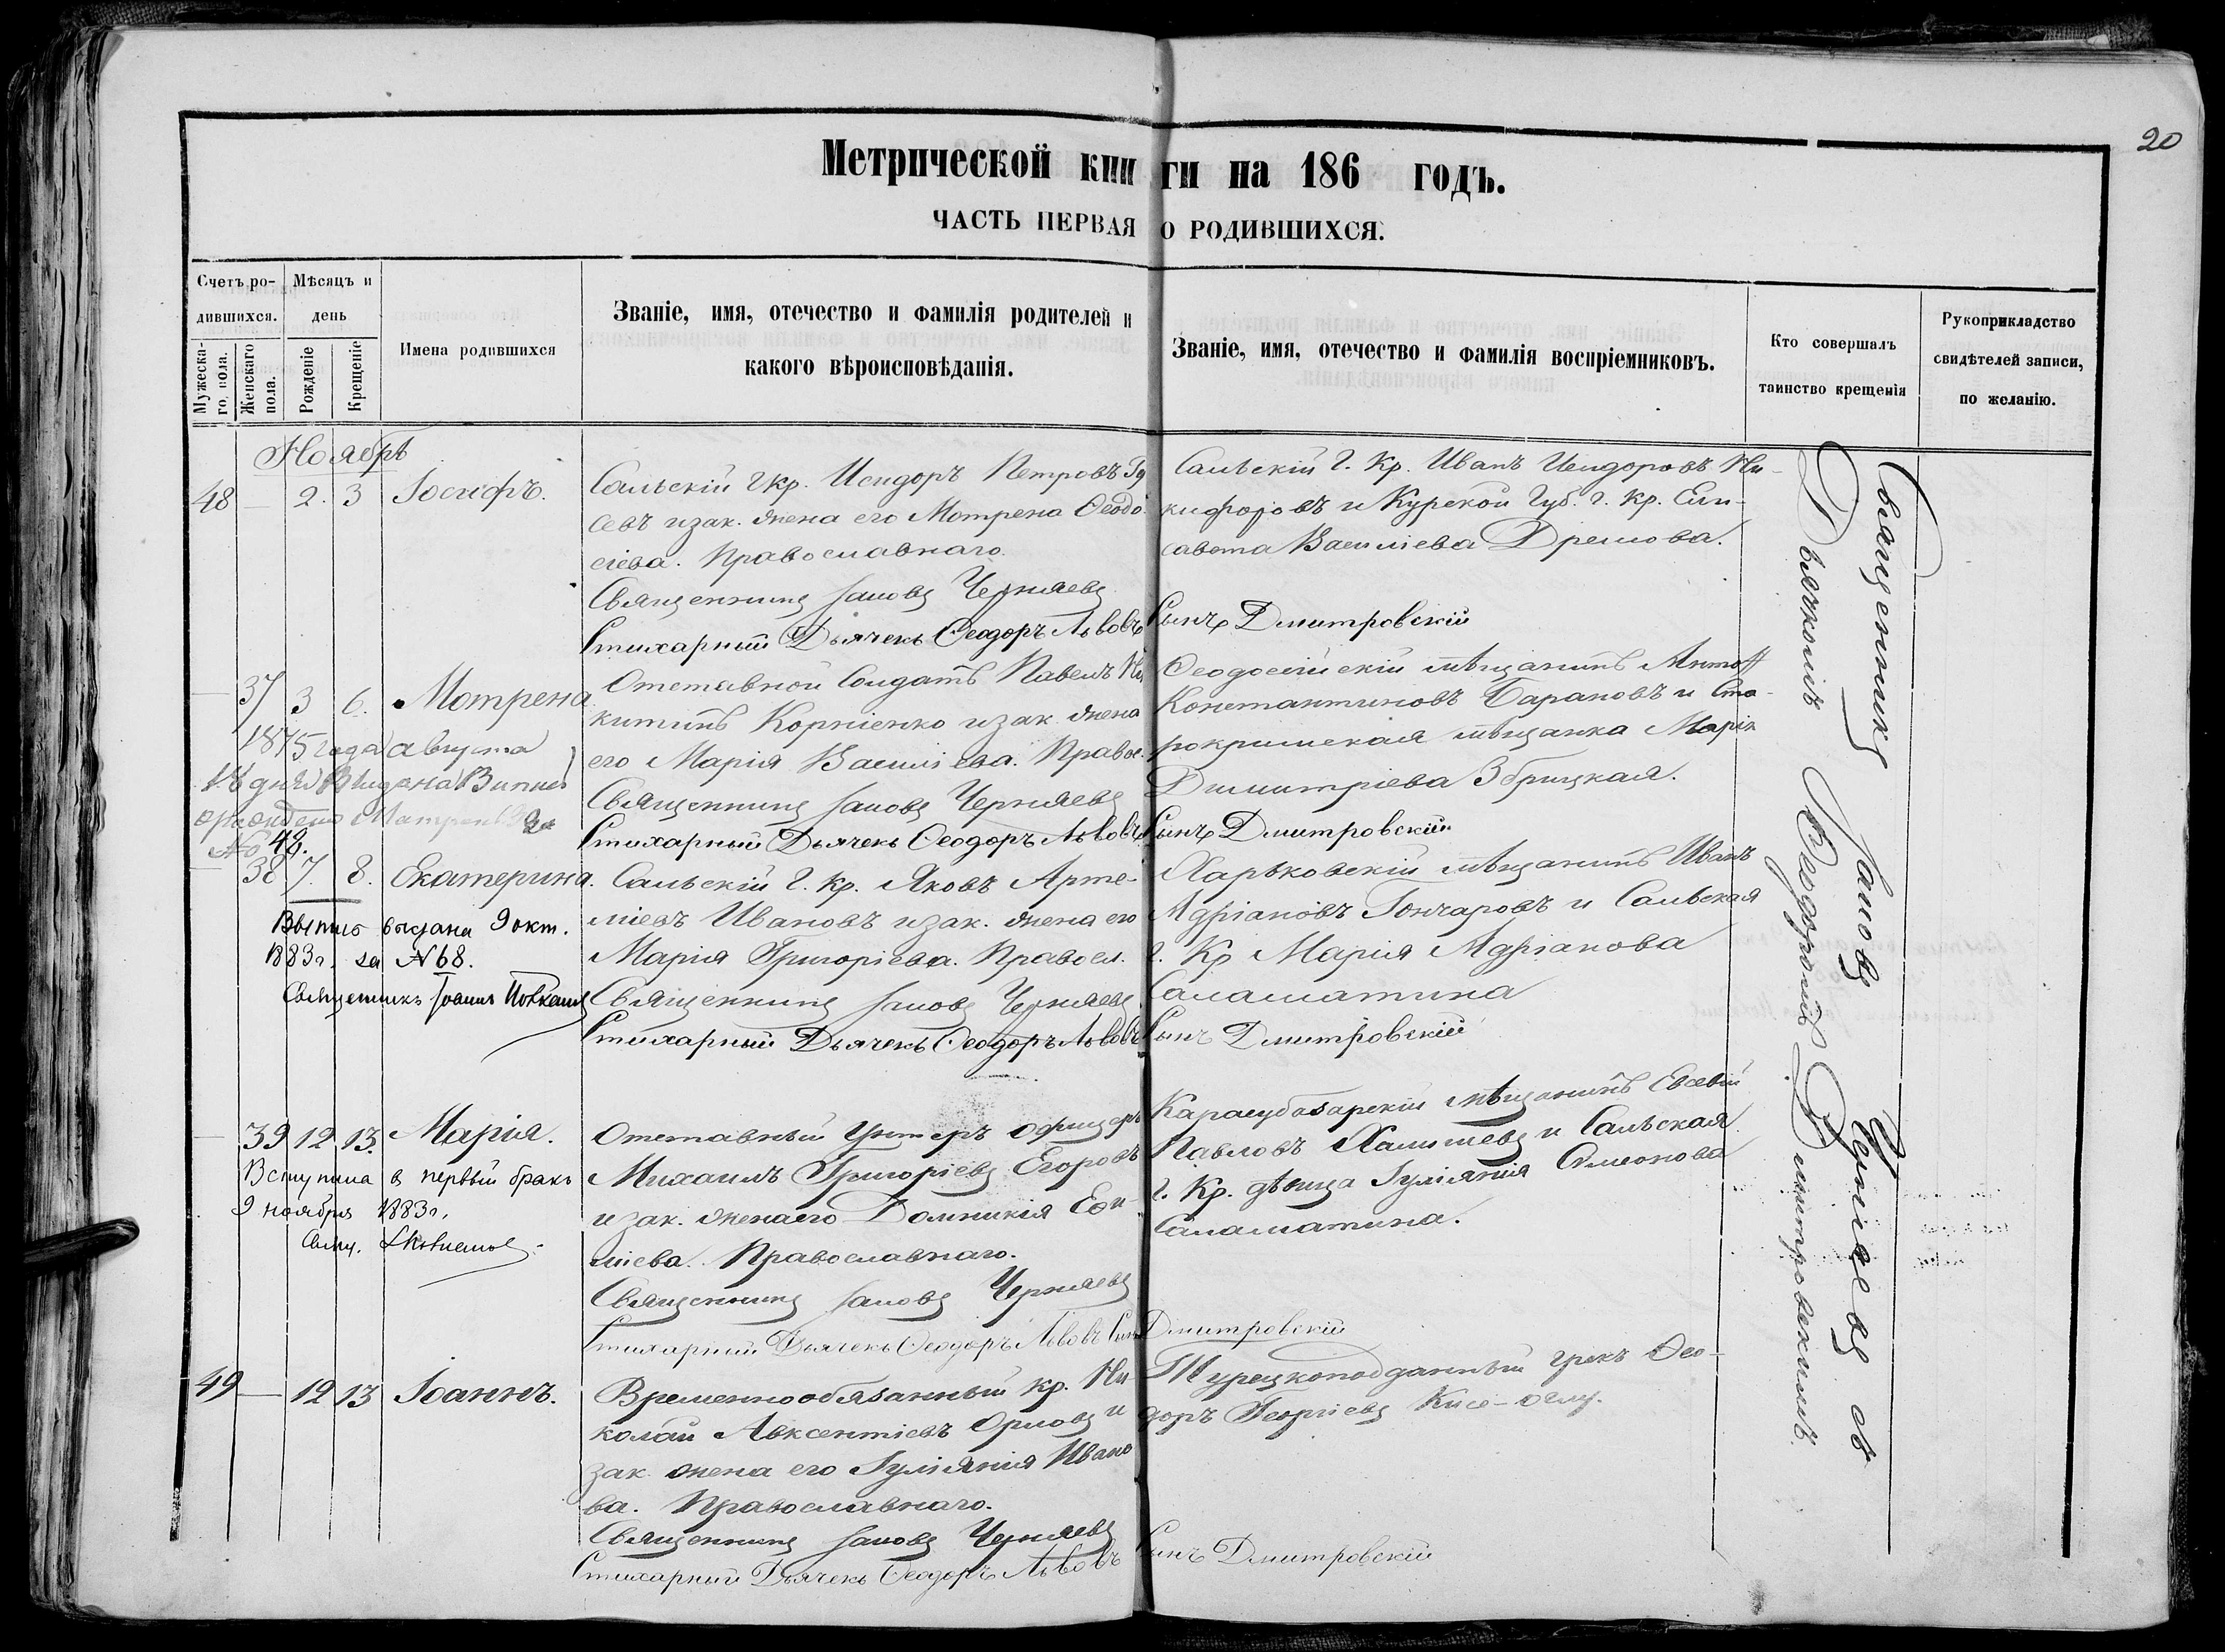 20
Метрической книги на 186 годъ.
ЧАСТЬ ПЕРВАЯ О РОДИВШИХСЯ.
Счетъ родившихся.
Мужеска-го, пола.
Женскаго пола.
Мѣсяцъ и день
Рожденіе
Крещеніе
Имена родившихся
Званіе, имя, отечество и фамилія родителей и
какого вѣроисповѣданія.
Званіе, имя, отечество и фамилія воспріемниковъ.
Кто совершалъ
таинство крещенія
Рукоприкладство
свидѣтелей записи,
по желанію.
Ноябрь
48 — 2. 3 Іосифъ.
Сальскій г кр. Исидоръ Петровъ Гу
севъ и зак. жена его Мотрена Ѳеодо
сіева. Православнаго.
Священникъ Іаковъ Черняевъ
Стихарный Дьячекъ Ѳеодоръ Львовъ
Сальскій г. кр. Иванъ Исидоровъ Ни-
кифоровъ и Курской Губ. г. кр. Ели-
савета Васильева Дремова.
Сынъ Дмитровскій
— 37 3 6. Мотрена
1875 года августа
18 дня Видана Випись
о рождении Матрены за
№ 48.
Отставной Солдатъ Павелъ Ни
китинъ Корніенко и зак. жена
его Марія Василіева. Правос.
Священникъ Іаковъ Черняевъ
Стихарный Дьячекъ Ѳеодоръ Львовъ
Ѳеодосійскій мѣщанинъ Антоній
Константиновъ Барановъ и Ста-
рокримская мѣщанка Марія
Димитріева Збрицкая.
Сынъ Дмитровскій
— 38 7. 8. Екатерина.
Выпись выдана 9 окт.
1883 г. за № 68.
Священникъ Іоаннъ
Сальскій г. кр. Яковъ Арте-
міевъ Ивановъ и зак. жена его
Марія Григоріева. Правосл.
Священникъ Іаковъ Черняевъ
Стихарный Дьячекъ Ѳеодоръ Львовъ
Харьковскій мѣщанинъ Иванъ
Адріановъ Гончаровъ и Сальская
г. кр Марія Адріанова
Саламатина
Сынъ Дмитровскій
— 39 12 13. Марія.
Вступила в первый бракъ
9 ноября 1883 г.
Свящ.
Отставный Унтеръ офицеръ
Михаилъ Григоріевъ Егоровъ
и зак. жена его Домникія Еѳи-
міева. Православнаго.
Священникъ Іаковъ Черняевъ
Стихарный Дьячекъ Ѳеодоръ Львовъ Сынъ
Карасубазарскій мѣщанинъ Евсевій
Павловъ Халишевъ и Сальская
г. кр. дѣвица Іуліанія Симеонова
Саламатина.
Дмитровскій
49 — 12 13 Іоаннъ.
Временнообязанный кр. Ни
колай Авксентіевъ Орловъ и
зак. жена его Іуліанія Ивано
ва. Православнаго.
Священникъ Іаковъ Черняевъ
Стихарный Дьячекъ Ѳеодоръ Львовъ
Турецкоподданный грекъ Ѳео-
доръ Георгіевъ Кисе-оглу.
Сынъ Дмитровскій
Священникъ Іаковъ Черняевъ съ
Дьячкомъ Ѳеодоромъ Дмитровскимъ.